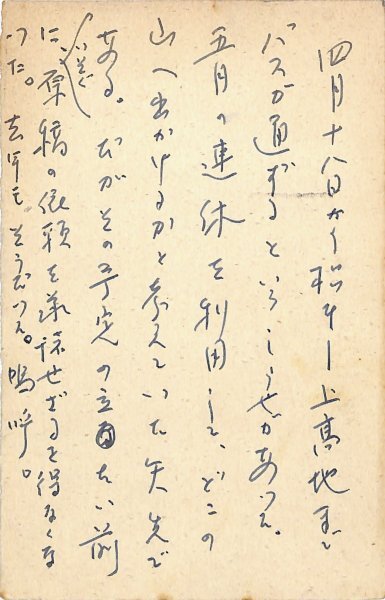 四月十八日から松本―上高地まで
バスが通ずるというしらせがあった。
五月の連休を利用して、どこの
山へ出かけるかと考えていた矢先で
ある。だがその予定の立たない前
に、いそぐ原稿の依頼を承諾せざるを得なくな
った。去年もそうだった。嗚呼。